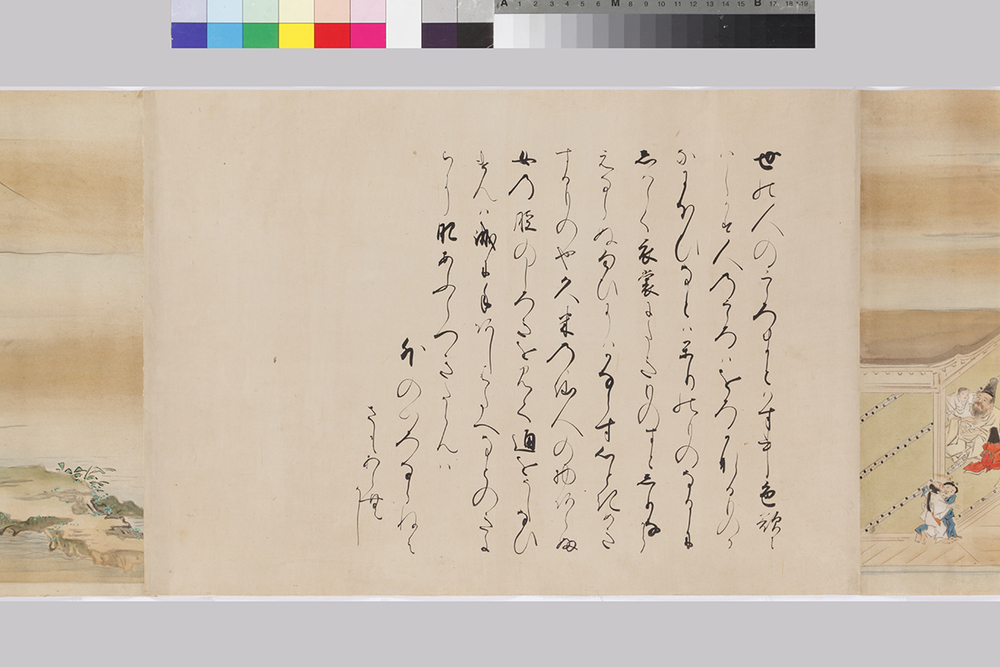 A 1 2 3 4 5 6 M 8 9 10 11 12 13 14 15 B 17 18 19
世の人のこゝろまとはす事色欲に
はしかす人のこゝろはをろかなるものか
なにほひなとはかりのものなるに
しはらく衣裳にたきものすとしりなから
えならぬ匂ひにはかならす心ときめき
するものや久米の仙人の物あらふ
女の脛のしろきを見て通をうしなひ
けんは誠に手あしはたへなとのきよ
らに肥あふらつきたらんは
外のいろならねは
さもあらんかし